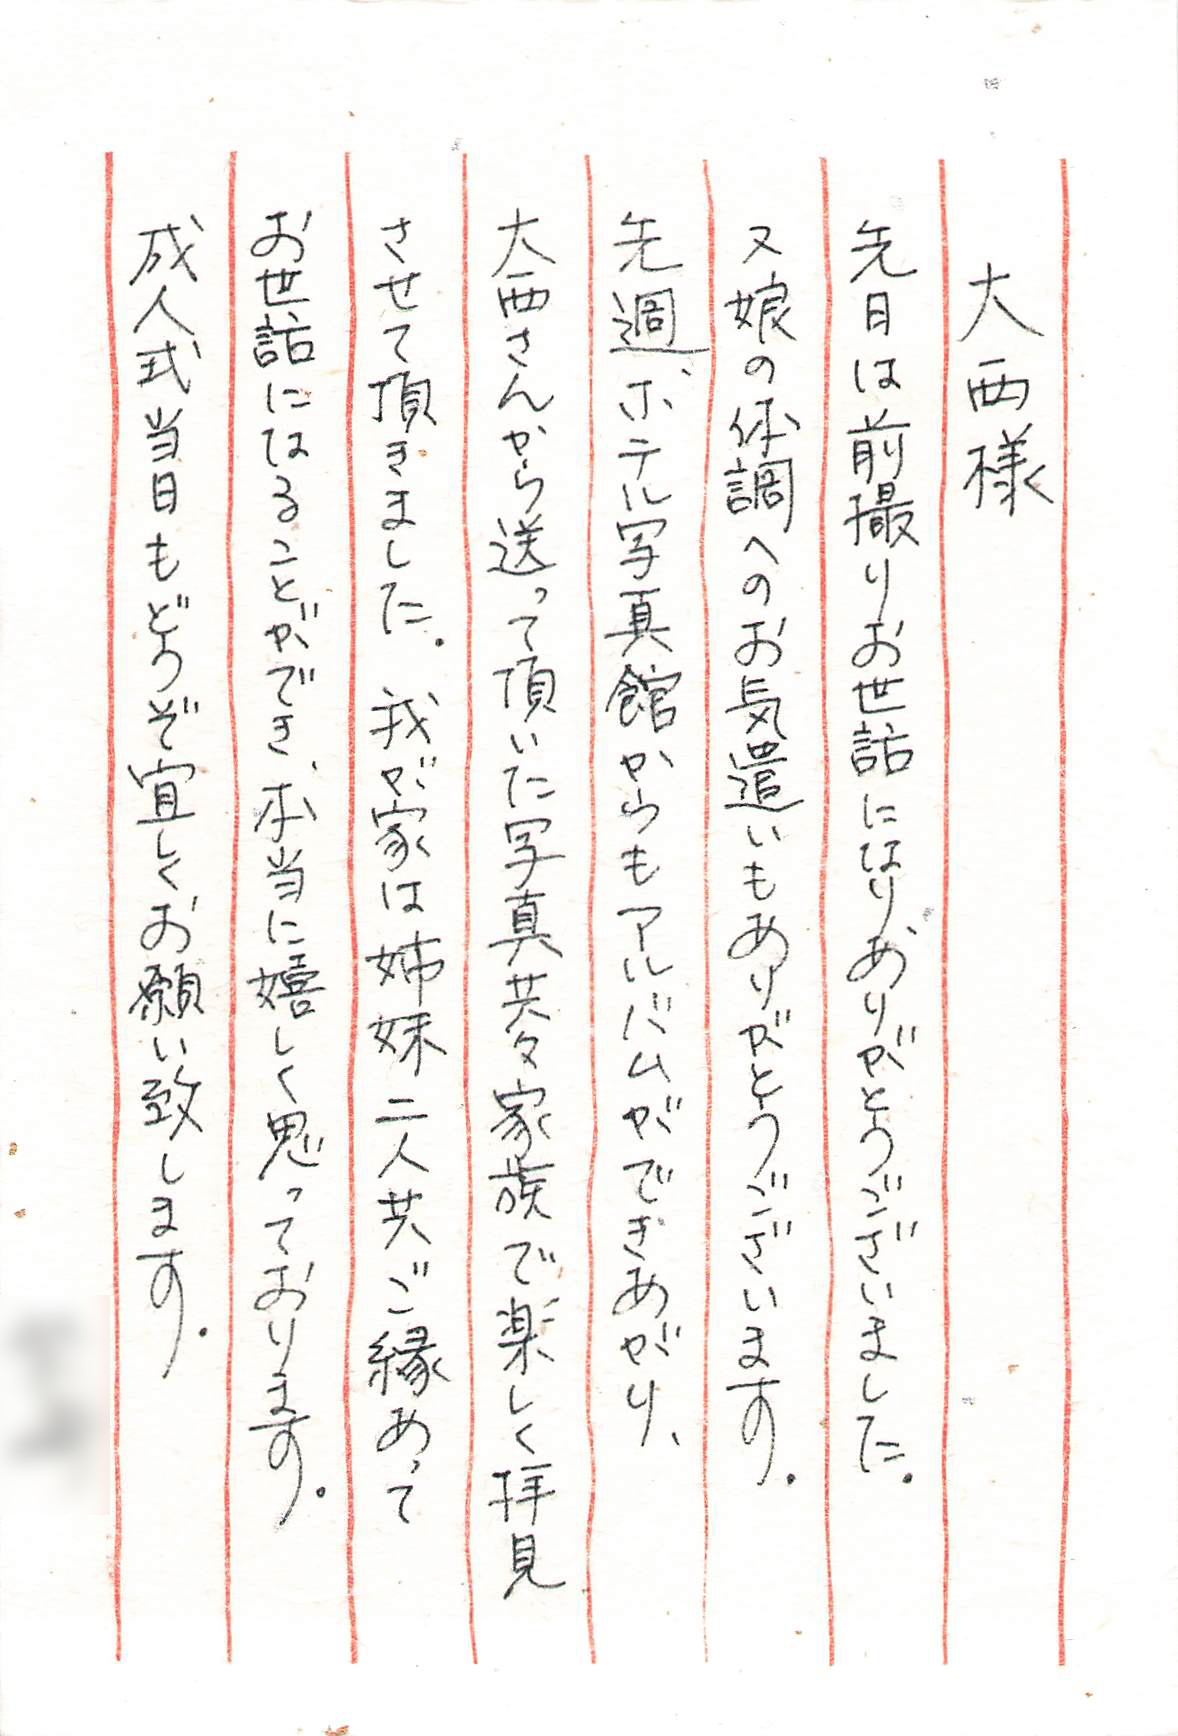 大西様
先日は前撮りお世話になりありがとうございました。
又娘の体調へのお気遣いもありがとうございます。
先週ホテル写真館からもアルバムができあがり、
大西さんから送って頂いた写真共々家族で楽しく拝見
させて頂きました。我が家は姉妹二人共ご縁あって
お世話になることができ、本当に嬉しく思っております。
成人式当日もどうぞ宜しくお願い致します。